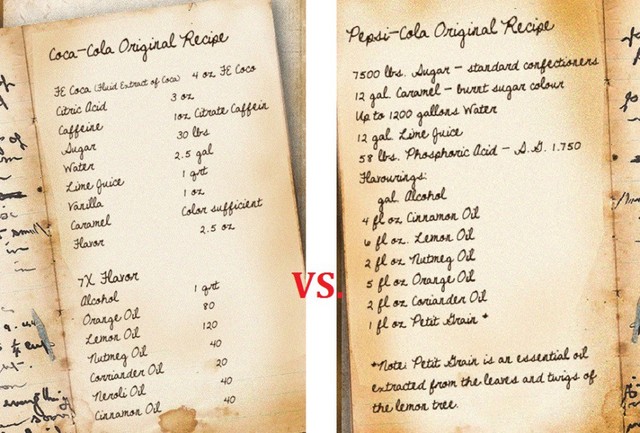 Coca-Cola Original Recipe
FE Coca (Fluid Extract of Coca) 4 oz FE Coco
Citric Acid 3 oz
Caffeine 1oz Citrate Caffein
Sugar 30 lbs
Water 2.5 gal
Lime Juice 1 qrt
Vanilla 1 oz
Caramel Color sufficient
Flavor 2.5 oz
7X Flavor
Alcohol 1 qrt
Orange Oil 80
Lemon Oil 120
Nutmeg Oil 40
Corriander Oil 20
Neroli Oil 40
Cinnamon Oil 40
VS.
Pepsi-Cola Original Recipe
7500 lbs. Sugar – standard confectioners
12 gal. Caramel – burnt sugar colour
Up to 1200 gallons Water
12 gal. Lime Juice
58 lbs. Phosphoric Acid – S.G. 1.750
Flavourings:
gal. Alcohol
4 fl oz Cinnamon Oil
6 fl oz. Lemon Oil
2 fl oz Nutmeg Oil
5 fl oz Orange Oil
2 fl oz Coriander Oil
1 fl oz Petit Grain *
*Note: Petit Grain is an essential oil
extracted from the leaves and twigs of
the lemon tree.